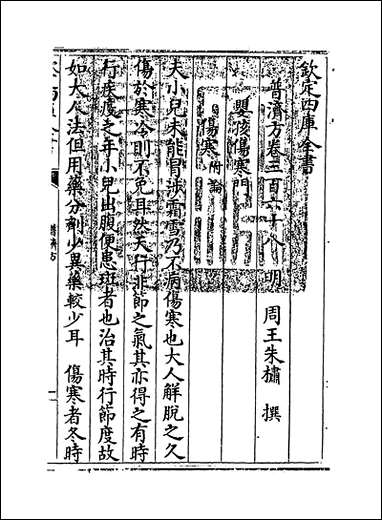 欽定四庫全書
普濟方卷三百六十八 明 周王朱橚 撰
嬰孩傷寒門
傷寒附論
夫小兒未能冒涉霜雪乃不病傷寒也大人解脫之久
傷於寒冷則不免耳然天行非節之氣其亦得之有時
行疾度之年小兒出腹便患斑者也治其時行節度故
如大人法但用藥分劑少異藥較少耳 傷寒者冬時
普濟方